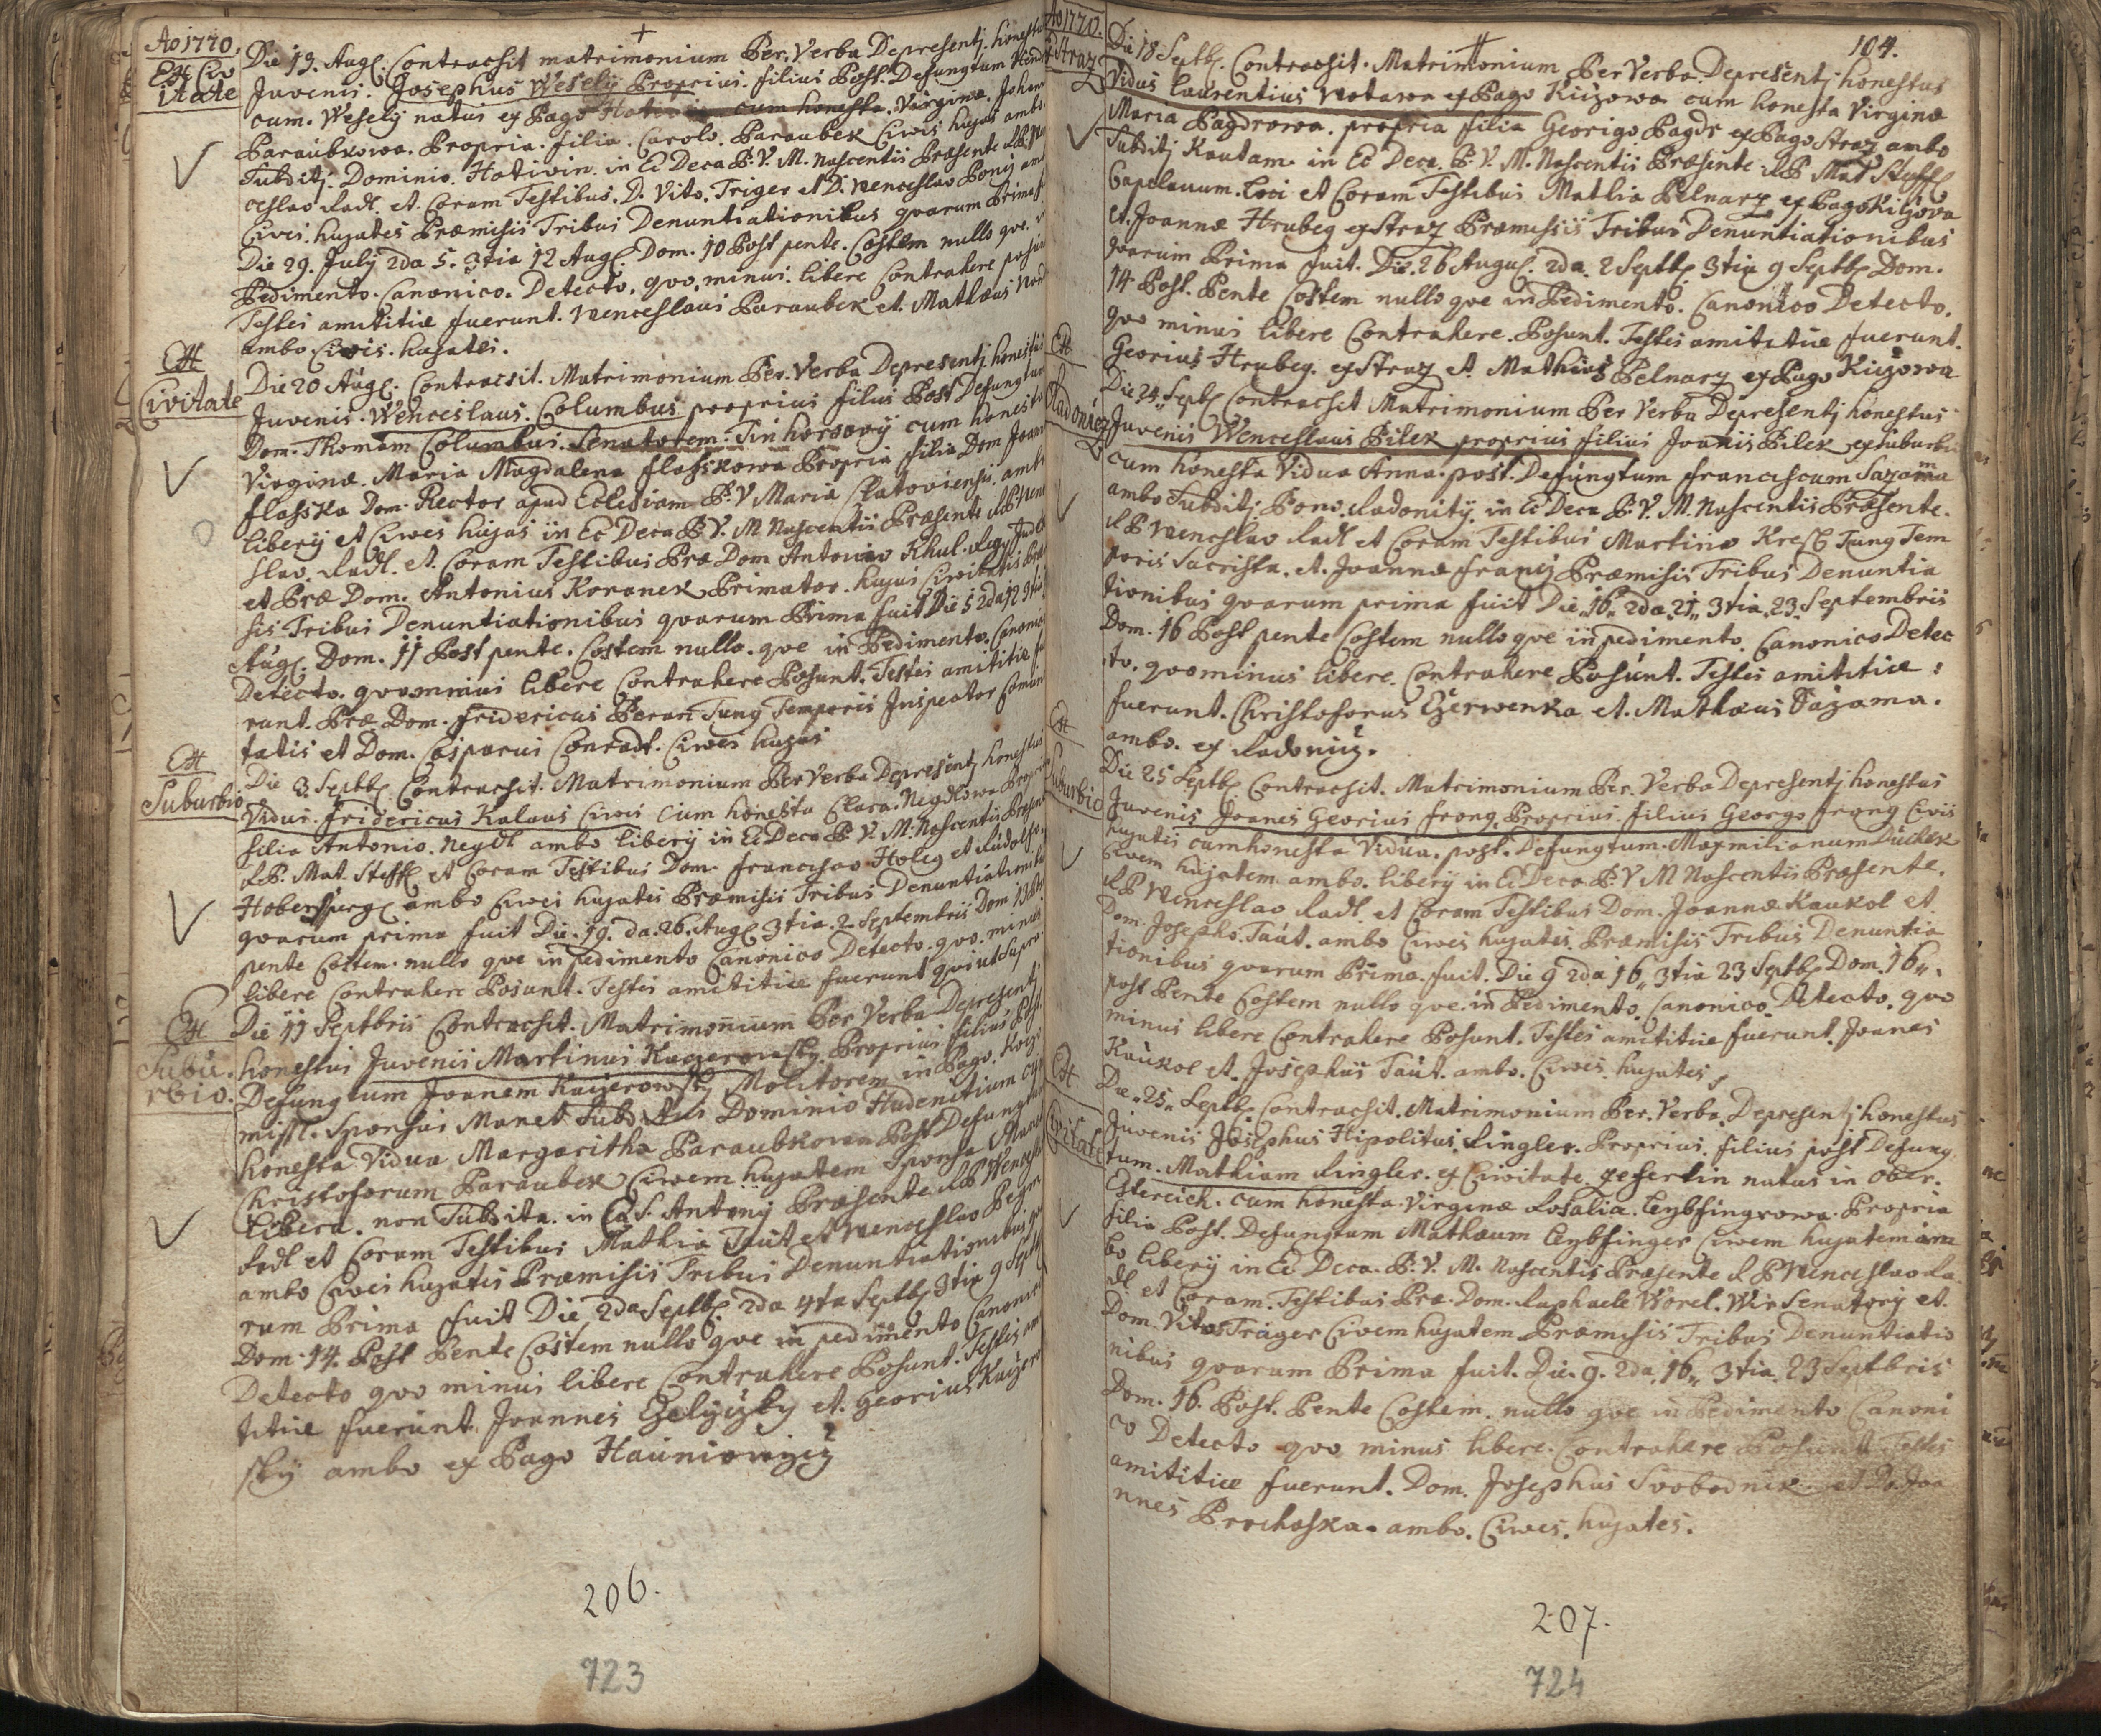 Ao 1770.
Ex Civ
itate
Die 19. Aug. Contracsit matrimonium Per. Verba Depresentj. honestus
Juvenis. Josephus Wesely Proprius. filius Post. Defungtum
cum. Wesely natus ex Pago cum honesta. Virginæ.
Paraubkowa. Propria. filia. Carolo. Paraubek Civis hujas ambo
Subditj. Dominio. Hotiwin. in Ec Deca B. V. M. nascentis Præsente
ceslao Radl. et. Coram Testibus. D. Vito. Triger et D. Wenceslao Ponij
Cives. hujates Præmisis Tribus Denuntiationibus qvarum Prima
Die 29. July 2da 5. 3tia 12 Aug. Dom. 10 Post pente. Costem nullo qve.
Pedimento. Canonico. Detecto. qvo. minus. libere Contrahere
Testes amititiæ fuerunt. Wenceslaus Paraubek et. Mathæus
ambo. Civis. hujates.
Ex
Civitate
Die 20 Aug. Contracsit. Matrimonium Per. Verba Depresentj honestus
Juvenis. Wenceslaus. Columbus proprius filius Post Defungtum
Dom. Thomam Columbus. Senatorem. Tin horsovij cum honesta
Virginæ. Maria Magdalena flasskowa Propria filia Dom
flasska Dom. Rector apud Eclesiam B. V Maria Clatoviensis. ambo
liberij et Cives hujas in Ec Deca B V. M Nascentis Præsente
slao. Radl. et. Coram Testibus Præ Dom Antonio Khul.
et Præ Dom. Antonius Koranek Primator. hujas Civitatis
sis Tribus Denuntiationibus qvarum Prima fuit Die 5 2da 12
Aug. Dom. 11 Post pente. Costem nullo. qve in Pedimento. Canonico
Detecto. qvominus libere Contrahere Posunt. Testes amititiæ
runt. Præ Dom. fridericus Peran Tung Temporis Inspector
tatis et Dom. Casparus Conradt. Cives hujas
Ex
Suburbio
Die 3 Septb. Contracsit. Matrimonium Per Verba Depresentj honestus
Vidus. fridericus Kalaus Cives Cum honesta Clara. Negdlowa Propria
filia Antonio. Negdl ambo liberij in Ec Deca B. V. M. Nascentis
R P. Mat. Steffl et Coram Testibus Dom. francisco Holeg et Rudolfo
ambo Cives hujates Præmisis Tribus Denuntiationibus
qvarum prima fuit Die. 19. da. 26. Aug. 3tia. 2. Septembris Dom 13
pente Costem. nullo qve in pedimento Canonico Detecto. qvo. minus
libere Contrahere Posunt. Testes amititiæ fuerunt qvi ut supra.
Ex
Subu.
rbio.
Die 11 Septbris Contracsit. Matrimonium Per Verba Depresentj.
honestus Juvenis Martinus Kaÿerowsky. Proprius filius
Defungtum Joanem Kaÿerowsky Molitorem in Pago.
Sponsus Manet Dominio Hudenitium
honesta Vidua Margaritha Paraubkowa Post
Christoforum Paraubek Civem hujatem Sponsa
libera. non Subdita. in S. Antonij Præsente R P Wenceslao
Radl et Coram Testibus Mathia Taut et Wenceslao
ambo Cives hujates Præmisis Tribus Denuntiationibus
rum Prima fuit Die 2da Septb. 2da Septb. 3tia 9
Dom. 14. Post Pente Costem nullo qve in pedimento Canonico
Detecto qvo minus libere Contrahere Posunt. Testes
titiæ fuerunt. Joannes et. Georius
sky ambo ex Pago
206.
723
Ao 1770.
Straz
104.
Die 18 Septb. Contracsit. Matrimonium Per Verba. Depresentj honestus
Vidus laurentius Watawa ex Pago Kizowa cum honesta Virginæ
Maria Pagdrowa. propria filia Georigo Pagdr ex Pago Straz ambo
Subditj Kautam. in Ec Deca. B. V. M. Nascentis Præsente. R P Mat Steffl
Capelanum. loci et Coram Testibus Mathia Pelnarz ex Pago
et. Joannæ Hrubeg ex Straz Præmisis Tribus Denuntiationibus
qvarum Prima fuit. Die. 26 Augus. 2da. 2 Septb. 3tia 9 Septb. Dom.
14 Post. Pente Costem nullo qve in Pedimento. Canonico Detecto.
qvo minus libere Contrahere. Posunt. Testes amititiæ fuerunt.
Georius Hrubeg. ex Straz et. Mathias Pelnarz ex Pago Kizowa
Ex
Radoniez
Die 24 Septb. Contracsit Matrimonium Per Verba Depresentj honestus
Juvenis Wenceslaus Bilek proprius filius Joanis Bilek ex
cum honesta Vidua Anna. post. Defungtum franciscum Sazama
ambo Subditj Radonitij. in Ec Deca. B. V. M. Nascentis Præsente.
R P Wenceslao Radl et Coram Testibus Martino Tung Tem
poris Sacrista. et. Joannæ Præmisis Tribus Denuntia
tionibus qvarum prima fuit Die 16 2da. 21 3tia. 23. Septembris
Dom. 16 Post pente Costem nullo qve in pedimento. Canonico Detec
to. qvominus libere. Contrahere Posunt. Testes amititiæ:
fuerunt. Christoforus Czerwenka et. Mathæus Sazama.
ambo. ex Radoniz.
Ex
Suburbio
Die 25 Septb. Contracsit. Matrimonium Per. Verba Depresentj honestus
Juvenis Joanes Georius frong. Proprius. filius Georgo frong Civis
hujatis cum honesta Vidua. post. Defungtum. Maxmilianum
Civem hujatem ambo. liberij in Ec Deca B. V M Nascentis Præsente.
R P Wenceslao Radl. et Coram Testibus Dom. Joannæ Kaukol et
Dom. Josepho. Taut. ambo Cives hujates. Præmisis Tribus Denuntia
tionibus qvarum Prima. fuit. Die 9 2da 16 3tia 23 Septb. Dom. 16
post Pente Costem nullo qve. in Pedimento. Canonico. Detecto. qvo
minus libere Contrahere Posunt. Testes amititiæ fuerunt. Joanes
Kaukol et. Josephus Taut. ambo. Cives. hujates
Ex
Civitate
Die 25 Septb. Contracsit. Matrimonium Per. Verba. Depresentj honestus
Juvenis Josephus Hipolitus Ringler. Proprius. filius post Defung
tum. Mathiam Ringler. ex Civitate. natus in Ober.
Estereich. cum honesta. Virginæ Rosalia. Propria
filia Post. Defungtum Mathæum Civem hujatem am
bo liberij in Ec Deca. B. V. M. Nascentis Præsente R P Wenceslao Ra
dl. et Coram. Testibus Præ. Dom. Raphaele Worel. Wir Senatorij et.
Dom. Vitus Träger Civem hujatem Præmisis Tribus Denuntiatio
nibus qvarum Prima fuit. Die. 9. 2da. 16 3tia. 23 Septbris
Dom. 16. Post. Pente Costem. nullo qve in Pedimento Canoni
co Detecto qvo minus libere. Contrahere Posunt Testes
amititiæ fuerunt. Dom. Josephus Svobodnik et D. Joa
nnes Prochaska. ambo. Cives. hujates.
207.
724